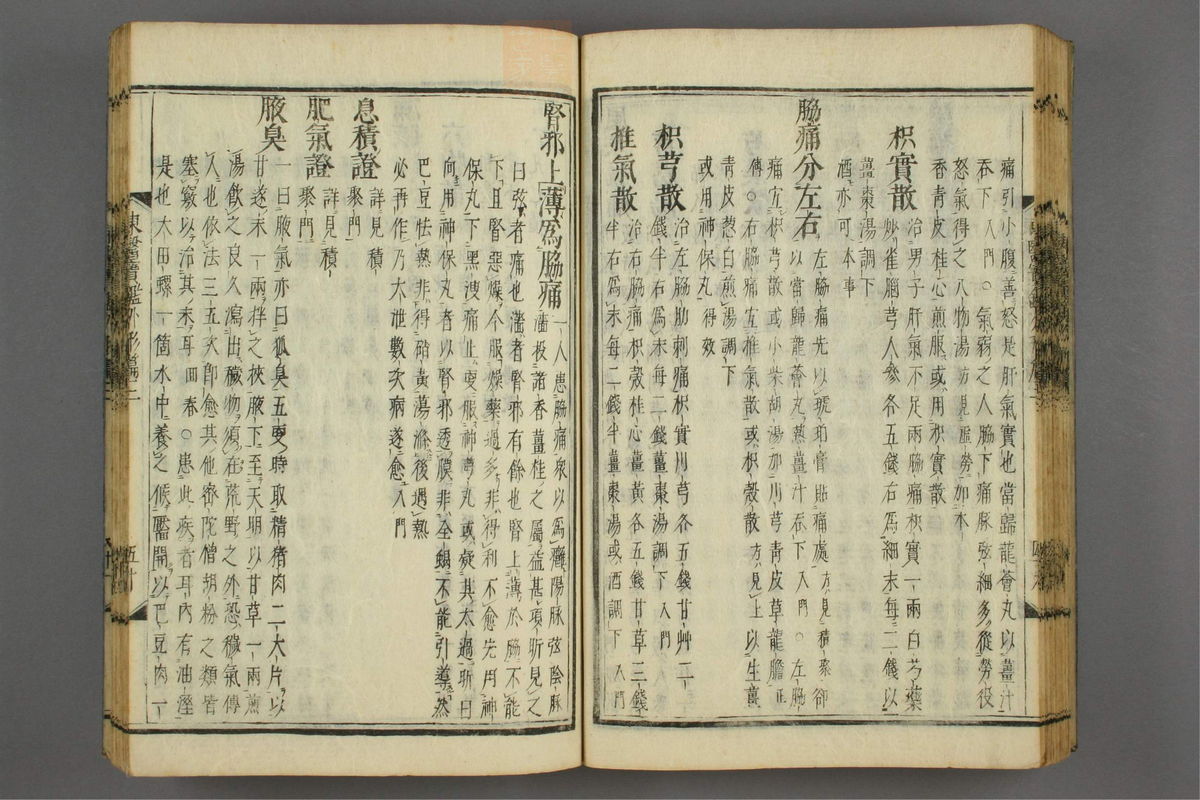 痛引小腹善怒是肝氣實也當歸龍薈丸以薑汁
吞下入門○氣弱之人脇下痛脉弦細多從勞役
怒氣得之八物湯方見虛勞加木
香靑皮桂心煎服或用枳實散
枳實散 治男子肝氣不足兩脇痛枳實一兩白芍藥
炒雀腦芎人參各五錢右爲細末每二錢以
薑棗湯調下
酒亦可本事
脇痛分左右 左脇痛先以琥珀膏貼痛處方見積聚却
以當歸龍薈丸熱薑汁吞下入門○左脇
痛宜枳芎散或小柴胡湯加川芎靑皮草龍膽正
傳○右脇痛宜推氣散或枳殼散方見上以生薑
靑皮葱白煎湯調下
或用神保丸得效
枳芎散 治左脇肋刺痛枳實川芎各五錢甘艸二
錢半右爲末每二錢薑棗湯調下入門
推氣散 治右脇痛枳殼桂心薑黃各五錢甘草三錢
半右爲末每二錢半薑棗湯或酒調下入門
腎邪上薄爲脇痛 一人患脇痛衆以爲癰陽脉弦陰脉
濇投諸香薑桂之屬益甚項昕見之
曰弦者痛也濇者腎邪有餘也腎上薄於脇不能
下且腎惡燥今服燥藥過多非得利不愈先用神
保丸下黑溲痛止更服神芎丸或疑其太過昕曰
向用神保丸者以腎邪透膜非全蝎不能引導然
巴豆性熱非得硝黃蕩滌後遇熱
必再作乃大泄數次病遂愈入門
息積證 詳見積
聚門
肥氣證 詳見積
聚門
腋臭 一曰腋氣亦曰狐臭五更時取精猪肉二大片以
甘遂末一兩拌之挾腋下至天明以甘草一兩煎
湯飮之良久瀉出穢物須在荒野之外恐穢氣傳
人也依法三五次卽愈其他密陀僧胡粉之類皆
塞竅以治其末耳回春○患此疾者耳內有油溼
是也大田螺一箇水中養之候靨開以巴豆肉一
東醫寶鑑外形篇三